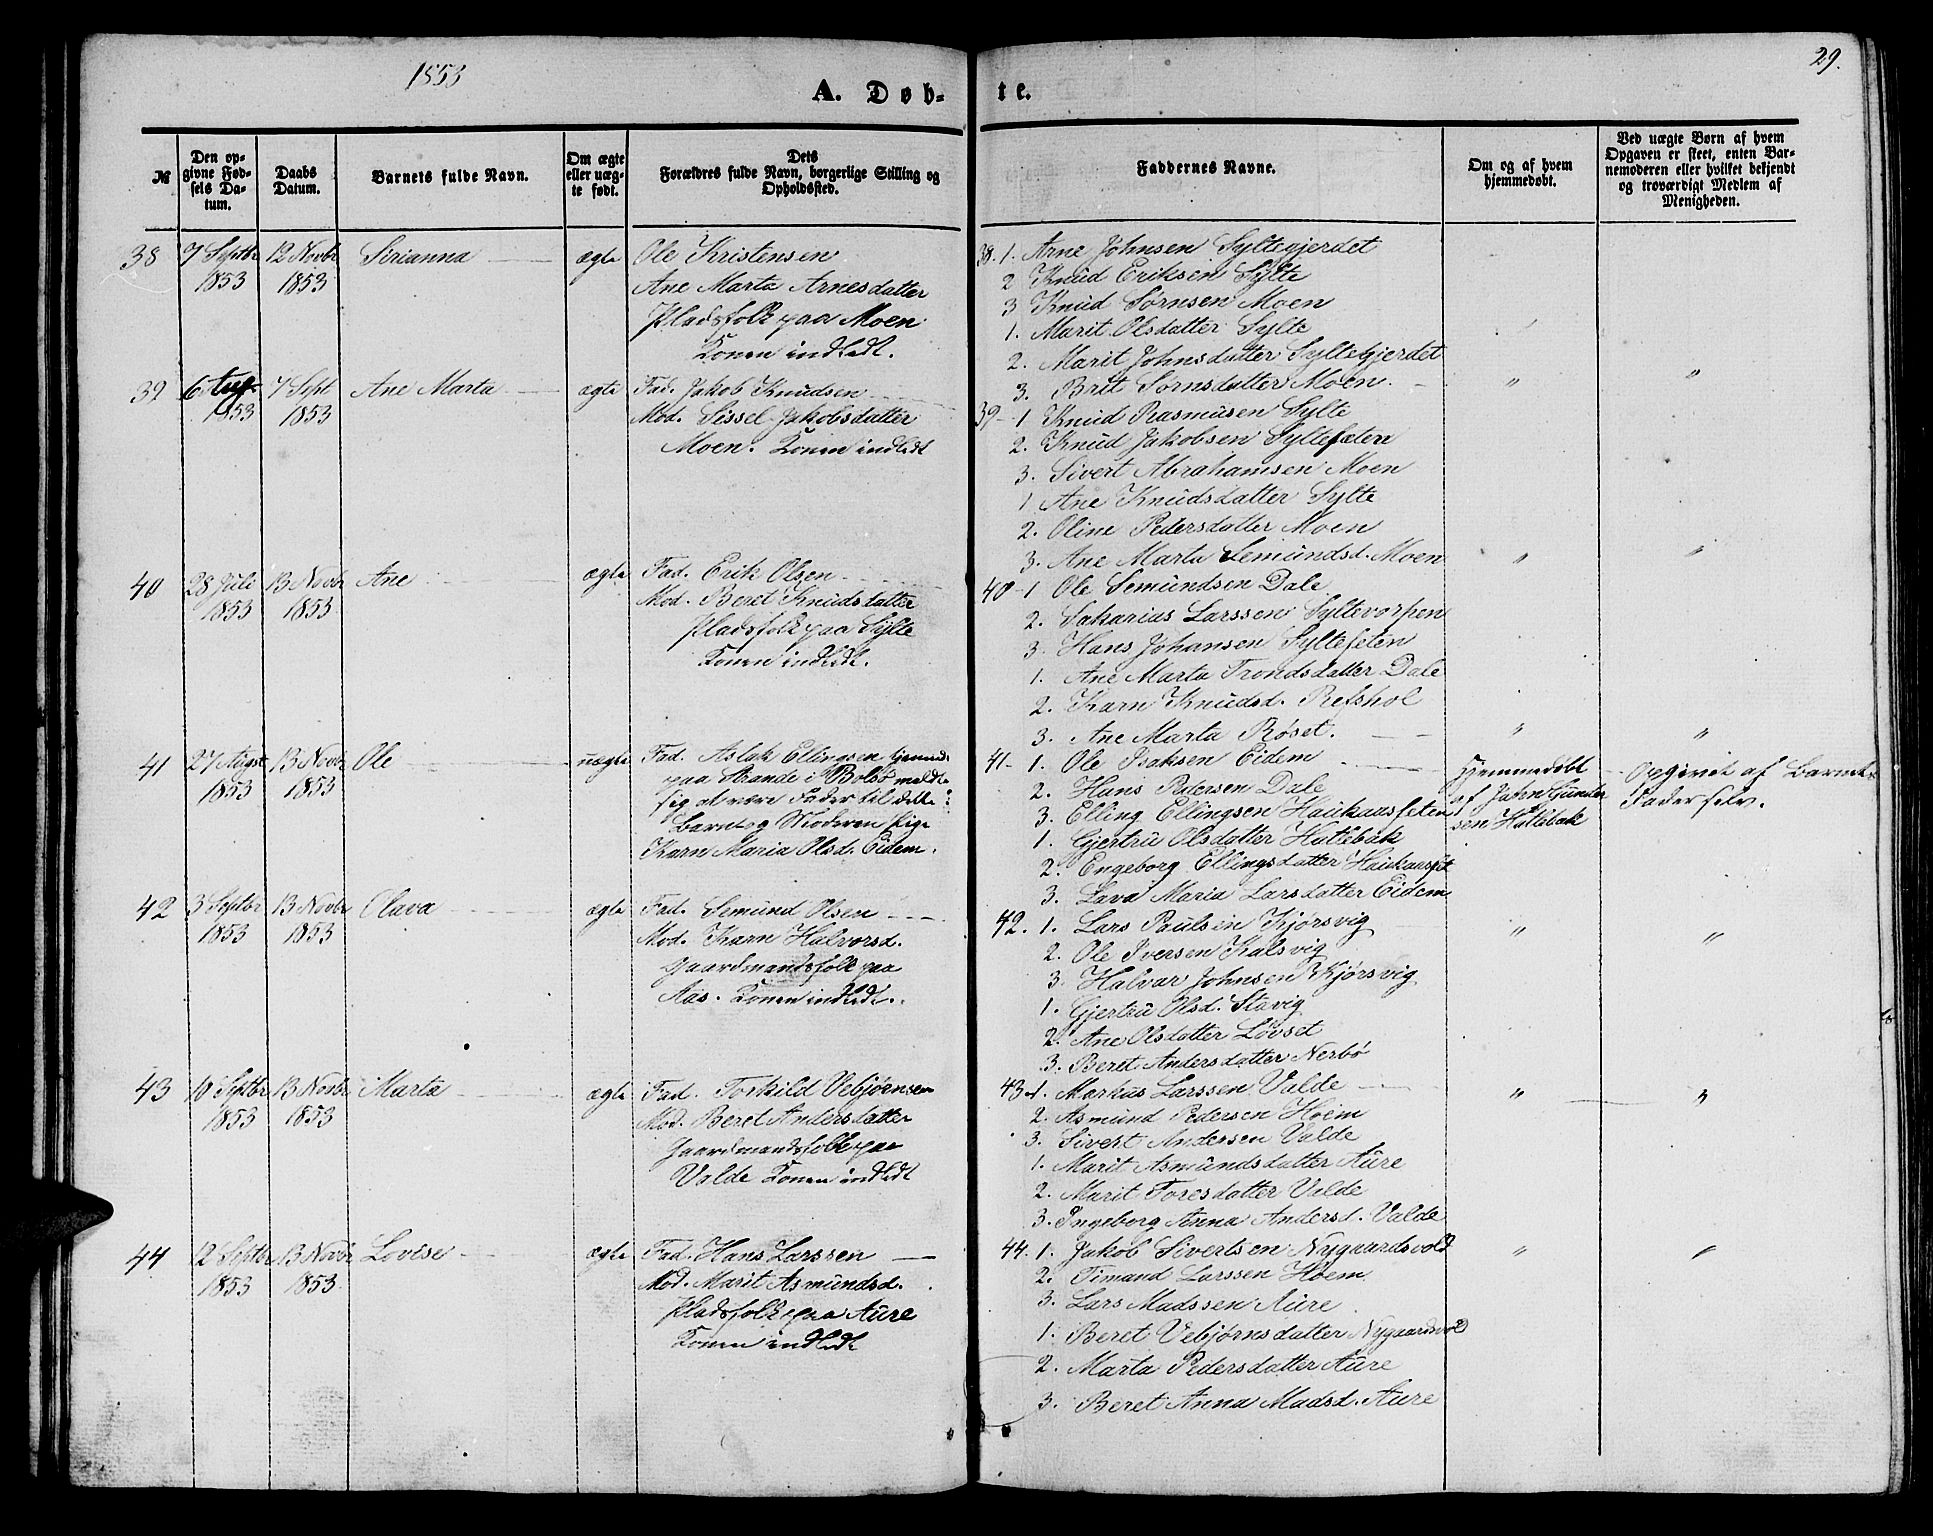 1853
29.
A. Døb-
te.
№
Den op-
givne Fød-
sels Da-
tum.
Daabs
Datum.
Barnets fulde Navn.
Om ægte
eller uæg-
te født.
Dets
Forældres fulde Navn, borgerlige Stilling og
Opholdssted.
Faddernes Navne.
Om og af hvem
hjemmedøbt.
Ved uægte Børn af hvem
Opgaven er skeet, enten Bar-
nemoderen eller hvilket bekjendt
og troværdigt Medlem af
Menigheden.
38 7 Septbr 12 Novbr Sirianna ægte Ole Kristensen
1853 1853 Ane Marta Arnesdatter
Pladsfolk paa Moen
Konen indledt.
38. 1. Arne Johnsen Syltegjerdet
2 Knud Eriksen Sylte
3 Knud Sørnsen Moen
1. Marit Olsdatter Sylte
2. Marit Johnsdatter Syltegjerdet
3. Brit Sørnsdatter Moen. " "
39 6 Aug. 7 Sept Ane Marta ægte Fad. Jakob Knudsen
1853 1853 Mod. Sissel Jakobsdatter
Moen. Konen indledt
39 - 1 Knud Rasmusen Sylte
2. Knud Jakobsen Syltesæten
3. Sivert Abrahamsen Moen
1 Ane Knudsdatter Sylte
2. Oline Pedersdatter Moen
3. Ane Marta Semundsd. Moen " "
40 28 Juli 13 Novbr Ane ægte Fad. Erik Olsen
1853 1853 Mod. Beret Knudsdatter
Pladsfolk paa Sylte
Konen indledt.
40 - 1 Ole Semundsen Dale
2. Sakarias Larssen Syltevorpen
3. Hans Johansen Sylteseten
1. Ane Marta Trondsdatter Dale
2. Karn Knudsd. Refshol
3. Ane Marta Røset. " "
41 27 Augst 13 Novbr Ole uægte Fad. Aslak Ellingsen hjemme
1853 1853 paa Strande i Bolsø meldte
sig at være Fader til dette
Barn og Moderen Pige
Karn Maria Olsd. Eidem.
41 - 1. Ole Isaksen Eidem Hjemmedøbt Opgivet af Barnets
2. Hans Petersen Dale af John Gunder Fader selv.
3. Elling Ellingsen Haukaasseten sen Hattebak
1. Gjertru Olsdatter Hattebak
2. Engeborg Ellingsdatter Haukaasset
3. Lava Maria Larsdatter Eidem
42 3 Septbr 13 Novbr Olava ægte Fad. Semund Olsen
1853 1853 Mod. Karn Halvorsd.
Gaardmandsfolk paa
Aas. Konen indledt.
42. 1. Lars Paulsen Kjørsvig " "
2. Ole Iversen Kalsvig
3. Halvar Johnsen Kjørsvig
1. Gjertru Olsd. Stavig
2. Ane Olsdatter Løvset
3. Beret Andersdatter Nerbø
43 10 Septbr 13 Novbr Marta ægte Fad. Torkild Vebjørnsen
1853 1853 Mod. Beret Andersdatter
Gaardmandsfolk paa
Valde Konen indledt
43 1. Markus Larssen Valde " "
2. Asmund Pedersen Hoem
3. Sivert Andersen Valde
1. Marit Asmundsdatter Aure
2. Marit Toresdatter Valde
3. Ingeborg Anna Andersd. Valde
44 12 Septbr 13 Novbr Lovise ægte Fad. Hans Larssen
1853 1853 Mod. Marit Asmundsd.
Pladsfolk paa Aure
Konen indledt
44. 1. Jakob Sivertsen Nygaardsvold " "
2. Timand Larssen Hoem
3. Lars Madssen Aure
1. Beret Vebjørnsdatter Nygaardsvold
2. Marta Pedersdatter Aure
3. Beret Anna Madsd. Aure